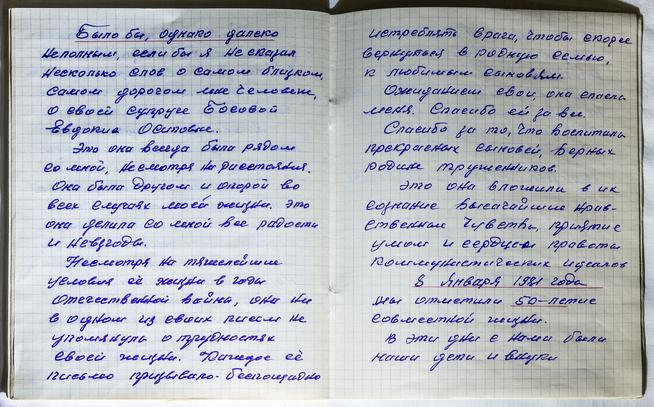 Было бы, однако далеко
неполным, если бы я не сказал
несколько слов о самом близком,
самом дорогом мне человеке,
о своей супруге Босовой
Евдокие Осиповне.
Это она всегда была рядом
со мной, несмотря на расстояния.
Она была другом и опорой во
всех случаях моей жизни. Это
она делила со мной все радости
и невзгоды.
Несмотря на тяжелейшие
условия её жизни в годы
отечественной войны, она ни
в одном из своих писем не
упомянула о трудностях
своей жизни. Каждое её
письмо призывало беспощадно
истреблять врага, чтобы скорее
вернуться в родную семью,
к любимым сыновьям.
Ожиданием свои, она спасла
меня. Спасибо ей за все.
Спасибо за то, что воспитала
прекрасных сыновей, верных
родине тружеников.
Это она вложила в их
сознание высочайшие нрав-
ственные чувства, приятие
умом и сердцем правоты
коммунистических идеалов
8 января 1981 года
мы отметили 50-летие
совместной жизни.
В эти дни с нами были
наши дети и внуки